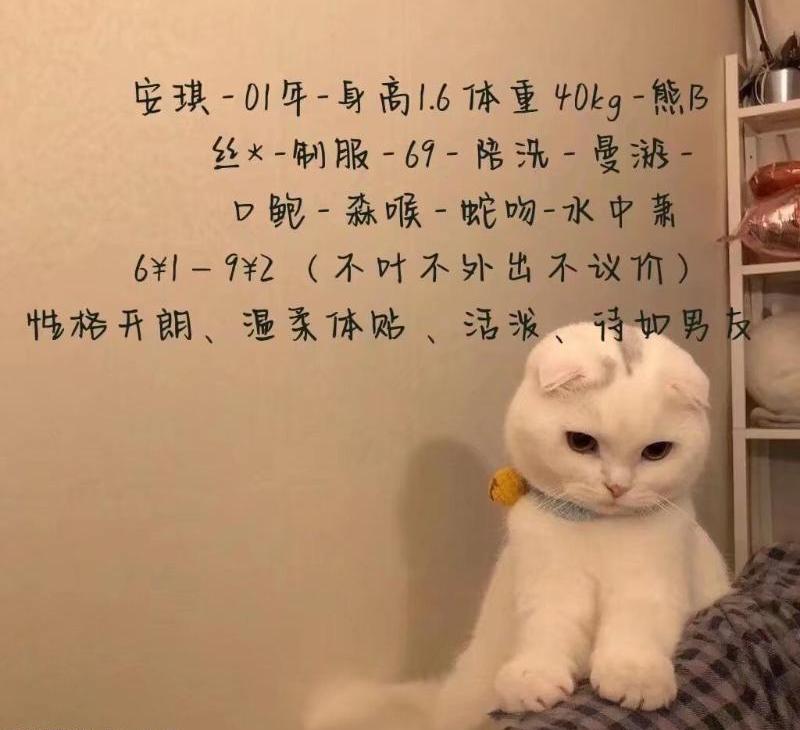 安琪-01年-身高1.6体重40kg-熊B
丝*-制服-69-陪洗-曼游-
口鲍-森喉-蛇吻-水中萧
6¥1-9¥2(不叶不外出不议价)
性格开朗、温柔体贴、活泼、待如男友